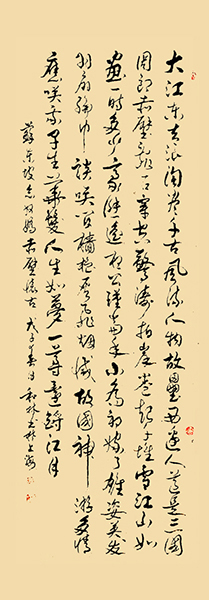 大江东去浪淘尽千古风流人物故垒西边人道是三国
周郎赤壁乱石穿空惊涛拍岸卷起千堆雪江山如
画一时多少豪杰遥想公瑾当年小乔初嫁了雄姿英发
羽扇纶巾谈笑间樯橹灰飞烟灭故国神游多情
应笑我早生华发人生如梦一尊还酹江月
苏东坡念奴娇赤壁怀古戊子